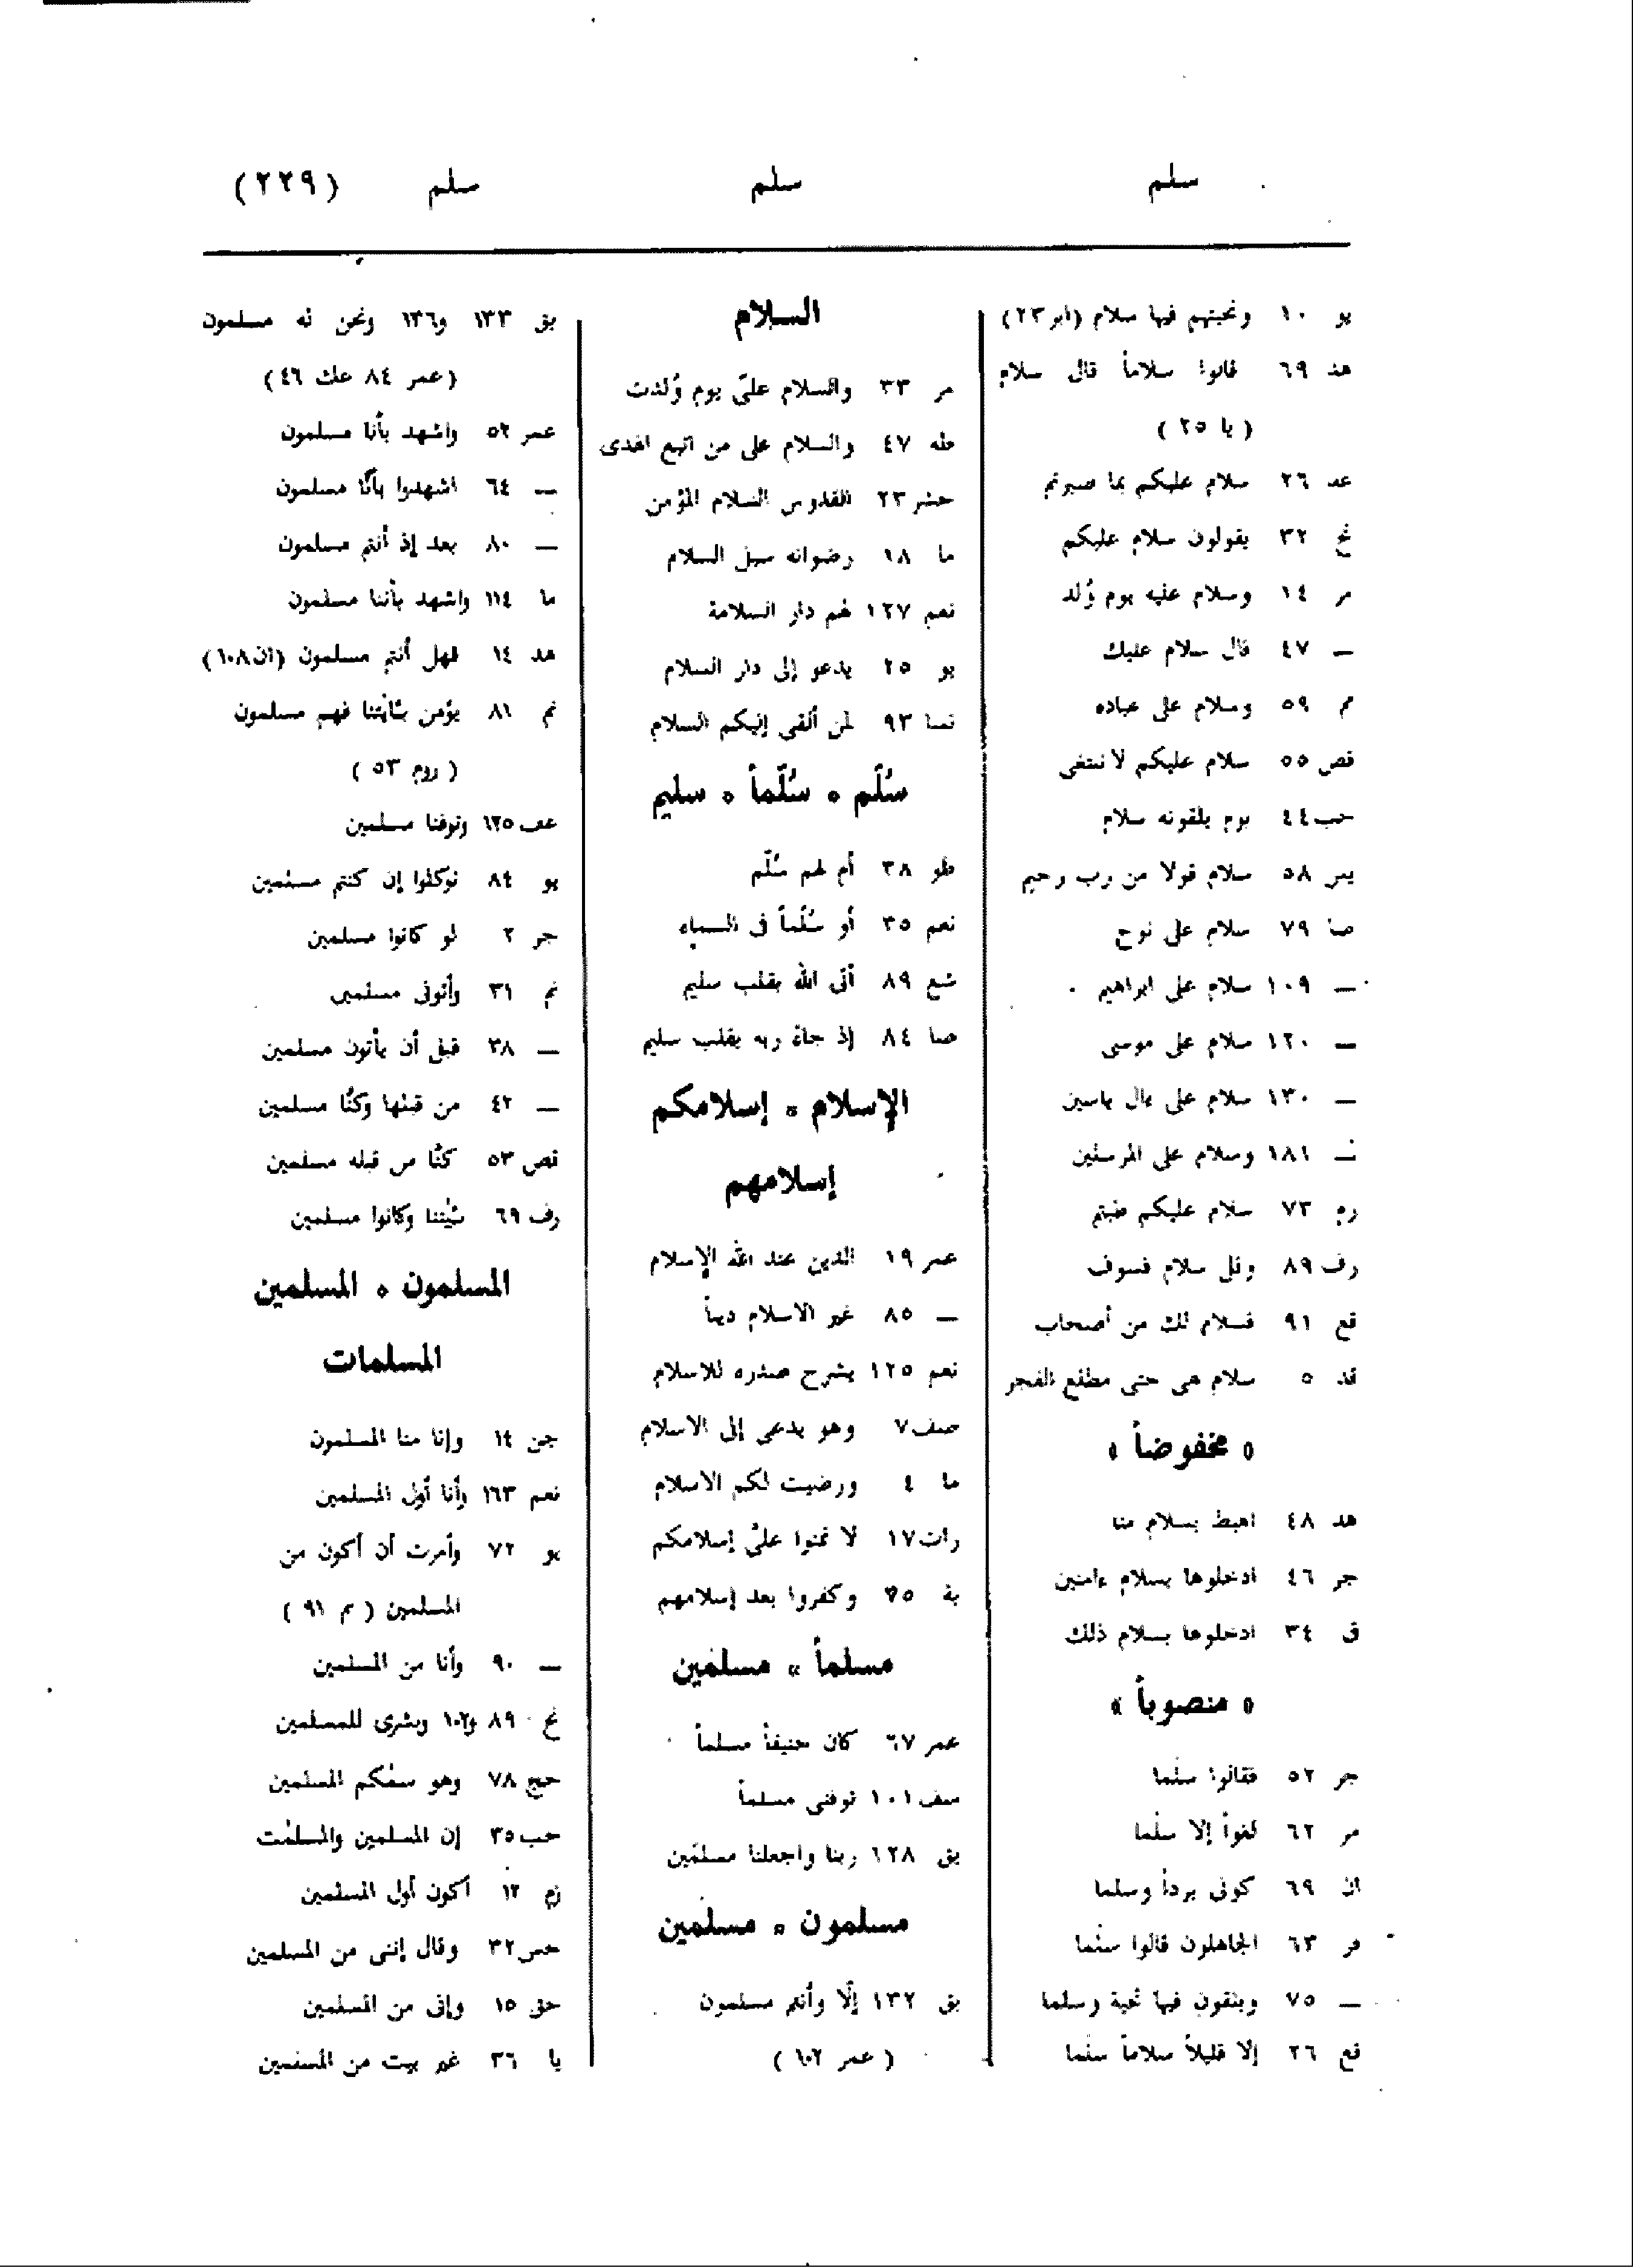 سلم
سلم
سلم
(٢٢٩)
يو ١٠ وتحيتهم فيها سلام (ابر ٢٣)
هد ٦٩ قالوا سلاماً قال سلام
( يا ٢٥ )
عد ٢٦ سلام عليكم بما صبرتم
نح ٣٢ يقولون سلام عليكم
مر ١٤ وسلام عليه يوم وُلد
ــ ٤٧ قال سلام عليك
نم ٥٩ وسلام على عباده
قص ٥٥ سلام عليكم لا نبتغى
حب ٤٤ يوم يلقونه سلام
يس ٥٨ سلام قولا من رب رحيم
صا ٧٩ سلام على نوح
ــ ١٠٩ سلام على ابراهيم
ــ ١٢٠ سلام على موسى
ــ ١٣٠ سلام على ءال ياسين
ــ ١٨١ وسلام على المرسلين
زم ٧٣ سلام عليكم طبتم
زف ٨٩ وقل سلام فسوف
قع ٩١ فسلام لك من أصحاب
قد ٥ سلام هى حتى مطلع الفجر
« مخفوضاً »
هد ٤٨ اهبط بسلام منا
جر ٤٦ ادخلوها بسلام ءامنين
ق ٣٤ ادخلوها بسلام ذلك
« منصوباً »
جر ٥٢ فقالوا سلٰما
مر ٦٢ لغواً إلا سلٰما
ان ٦٩ كونى برداً وسلما
فر ٦٣ الجاهلون قالوا سلٰما
ــ ٧٥ ويلقون فيها تحية وسلما
قع ٢٦ إلا قليلاً سلاماً سلٰما
السلام
مر ٣٣ والسلام علىّ يوم وُلدت
طه ٤٧ والسلام على من اتبع الهدى
حشر ٢٣ القدوس السلام المؤمن
ما ١٨ رضوانه سبل السلام
نعم ١٢٧ لهم دار السلامة
يو ٢٥ يدعو إلى دار السلام
نسا ٩٣ لمن ألقى إليكم السلام
سُلّم ٥ سُلّماً ٥ سليم
طو ٣٨ أم لهم سُلّم
نعم ٣٥ أو سُلّماً فى السماء
شع ٨٩ أتى الله بقلب سليم
صا ٨٤ إذ جاء ربه بقلب سليم
الإسلام ٥ إسلامكم
إسلامهم
عمر ١٩ الدين عند الله الإسلام
ــ ٨٥ غير الاسلام ديناً
نعم ١٢٥ يشرح صدره للاسلام
صف ٧ وهو يدعى إلى الاسلام
ما ٤ ورضيت لكم الاسلام
رات ١٧ لا تمنوا علىّ إسلامكم
بة ٧٥ وكفروا بعد إسلامهم
مسلماً ٥ مسلمَين
عمر ٦٧ كان حنيفاً مسلماً
سف ١٠١ توفنى مسلماً
بق ١٢٨ ربنا واجعلنا مسلمَين
مسلمون ٥ مسلمين
بق ١٣٢ إلّا وأنتم مسلمون
( عمر ١٠٢ )
بق ١٣٣ و١٣٦ ونحن له مسلمون
(عمر ٨٤ عك ٤٦)
عمر ٥٢ واشهد بأنا مسلمون
ــ ٦٤ اشهدوا بأنّا مسلمون
ــ ٨٠ بعد إذ أنتم مسلمون
ما ١١٤ واشهد بأننا مسلمون
هد ١٤ فهل أنتم مسلمون (ان ١٠٨)
نم ٨١ يؤمن بئايٰتنا فهم مسلمون
( روم ٥٣ )
عف ١٢٥ وتوفنا مسلمين
يو ٨٤ توكلوا إن كنتم مسلمين
جر ٢ لو كانوا مسلمين
نم ٣١ وأتونى مسلمين
ــ ٣٨ قبل أن يأتون مسلمين
ــ ٤٢ من قبلها وكنّا مسلمين
قص ٥٣ كنّا من قبله مسلمين
زف ٦٩ بئايٰتنا وكانوا مسلمين
المسلمون ٥ المسلمين
المسلمات
جن ١٤ وإنا منا المسلمون
نعم ١٦٣ وأنا أول المسلمين
يو ٧٢ وأمرت أن أكون من
المسلمين ( نم ٩١ )
ــ ٩٠ وأنا من المسلمين
نح ٨٩ و١٠٢ وبشرى للمسلمين
حج ٧٨ وهو سمٰكم المسلمين
حب ٣٥ إن المسلمين والمسلمٰت
زم ١٢ أكون أول المسلمين
حس ٣٢ وقال إننى من المسلمين
حق ١٥ وإنى من المسلمين
يا ٣٦ غير بيت من المسلمين